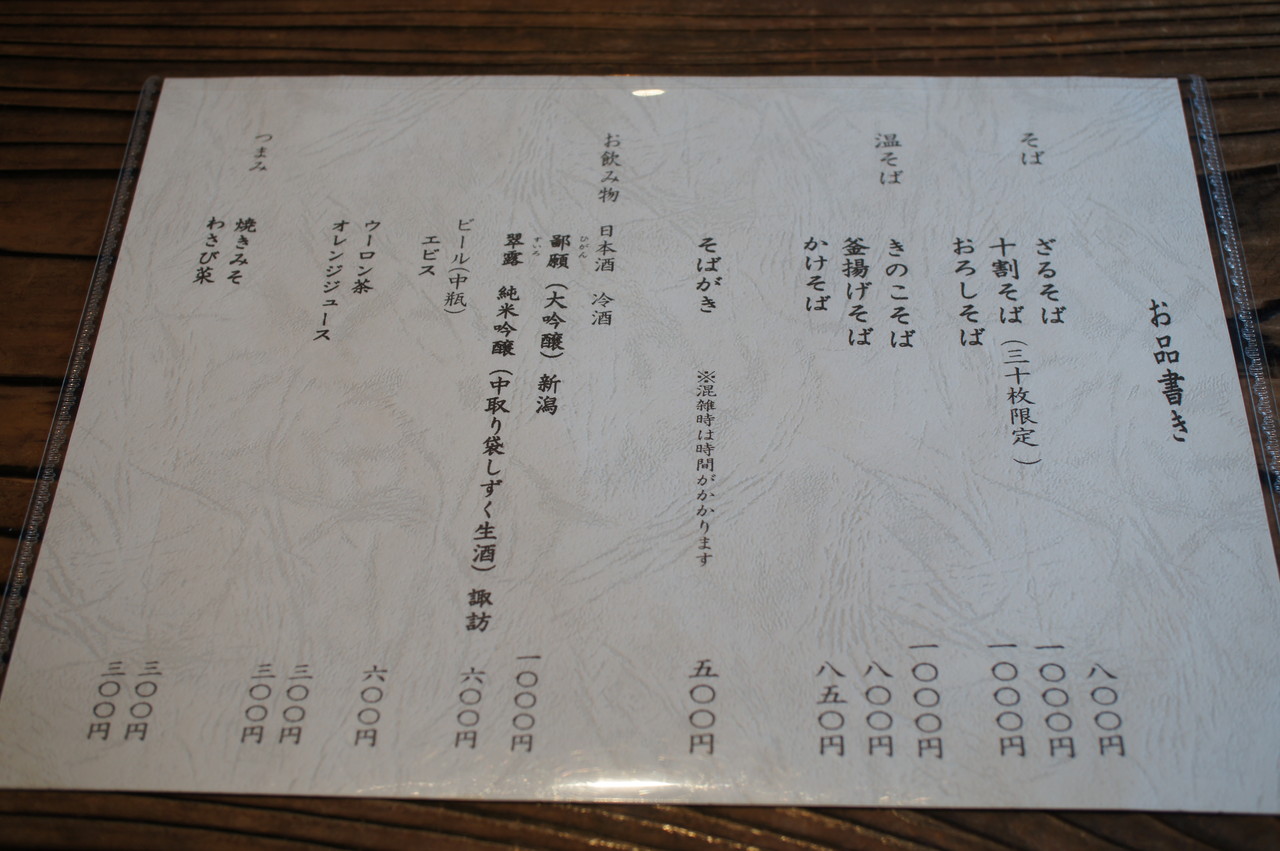 お品書き
そば
ざるそば 八〇〇円
十割そば（三十枚限定） 一〇〇〇円
おろしそば 一〇〇〇円
温そば
きのこそば 一〇〇〇円
釜揚げそば 八〇〇円
かけそば 八五〇円
そばがき ※混雑時は時間がかかります 五〇〇円
お飲み物 日本酒 冷酒
ひがん
鄙願（大吟醸）新潟 一〇〇〇円
すいろ
翠露 純米吟醸（中取り袋しずく生酒）諏訪 六〇〇円
ビール（中瓶）
エビス 六〇〇円
ウーロン茶 三〇〇円
オレンジジュース 三〇〇円
つまみ
焼きみそ 三〇〇円
わさび菜 三〇〇円